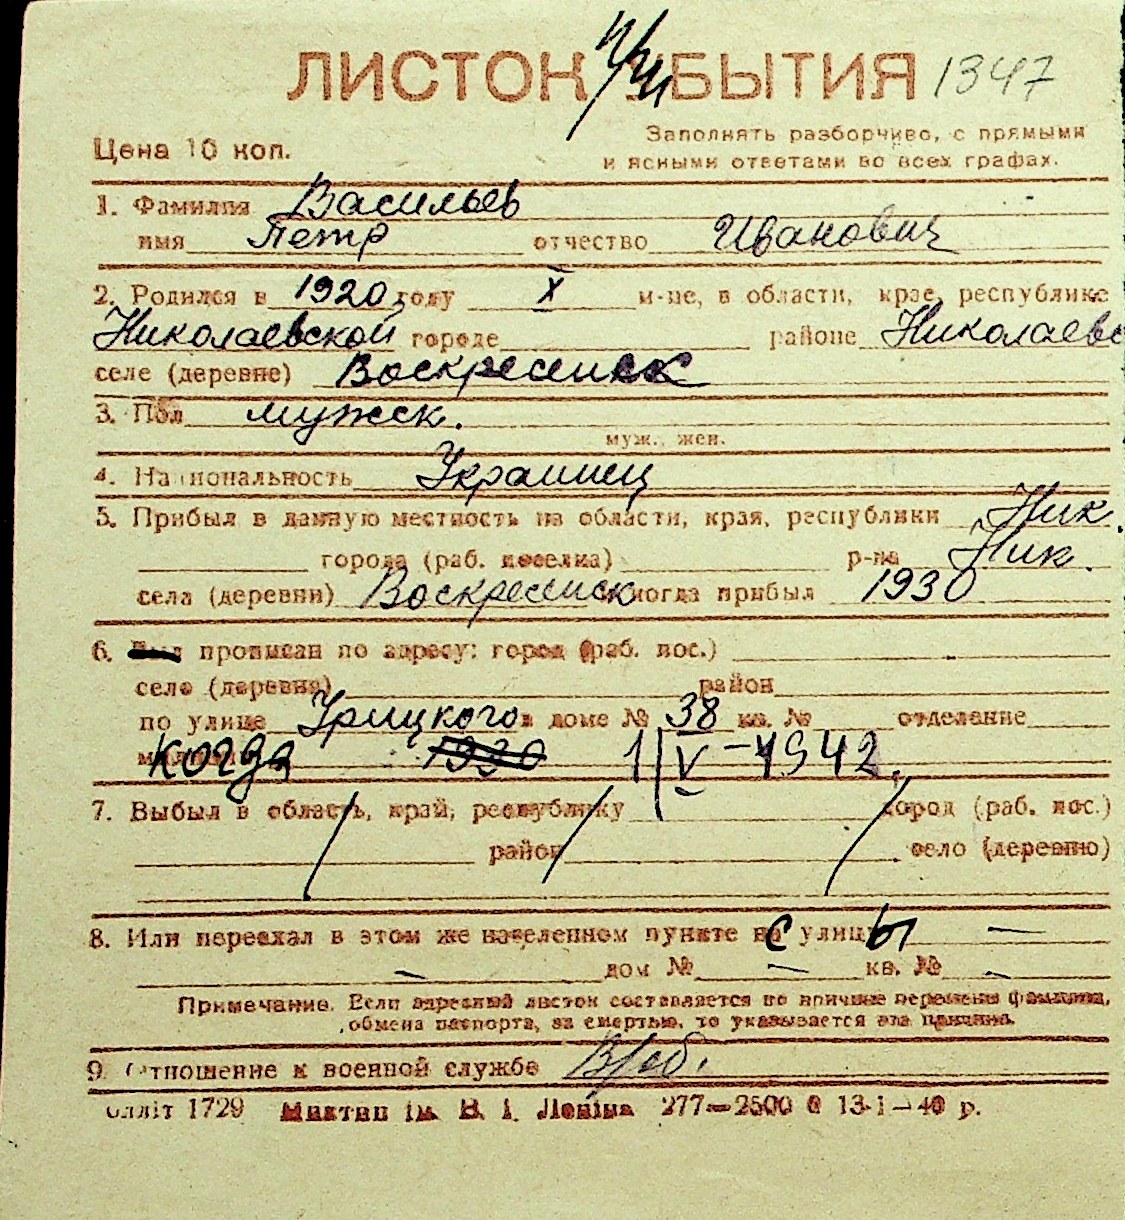 ЛИСТОК УБЫТИЯ 1347
Цена 10 коп.
Заполнять разборчиво, с прямыми
и ясными ответами во всех графах.
1. Фамилия Васильев
имя Петр отчество Иванович
2. Родился в 1920 году X м-це, в области, крае, республике
Николаевской городе районе Николаевс
селе (деревне) Воскресенск
3. Пол мужск.
муж., жен.
4. Национальность Украинец
5. Прибыл в данную местность из области, края, республики Ник.
города (раб. поселка) р-на Ник.
села (деревни) Воскресенск когда прибыл 1930
6. прописан по адресу: город (раб. пос.)
село (деревня) район
по улице Урицкого в доме № 38 кв. № отделение
когда 1930 1/V-1942.
7. Выбыл в область, край, республику город (раб. пос.)
район село (деревню)
8. Или переехал в этом же населенном пункте с улицы —
— дом № — кв. № —
Примечание. Если адресный листок составляется по причине перемены фамилии,
обмена паспорта, за смертью, то указывается эта причина.
9. Отношение к военной службе В/об.
блліт 1729 Миктип ім. В. І. Леніна 277—2500 б 13-1-40 р.